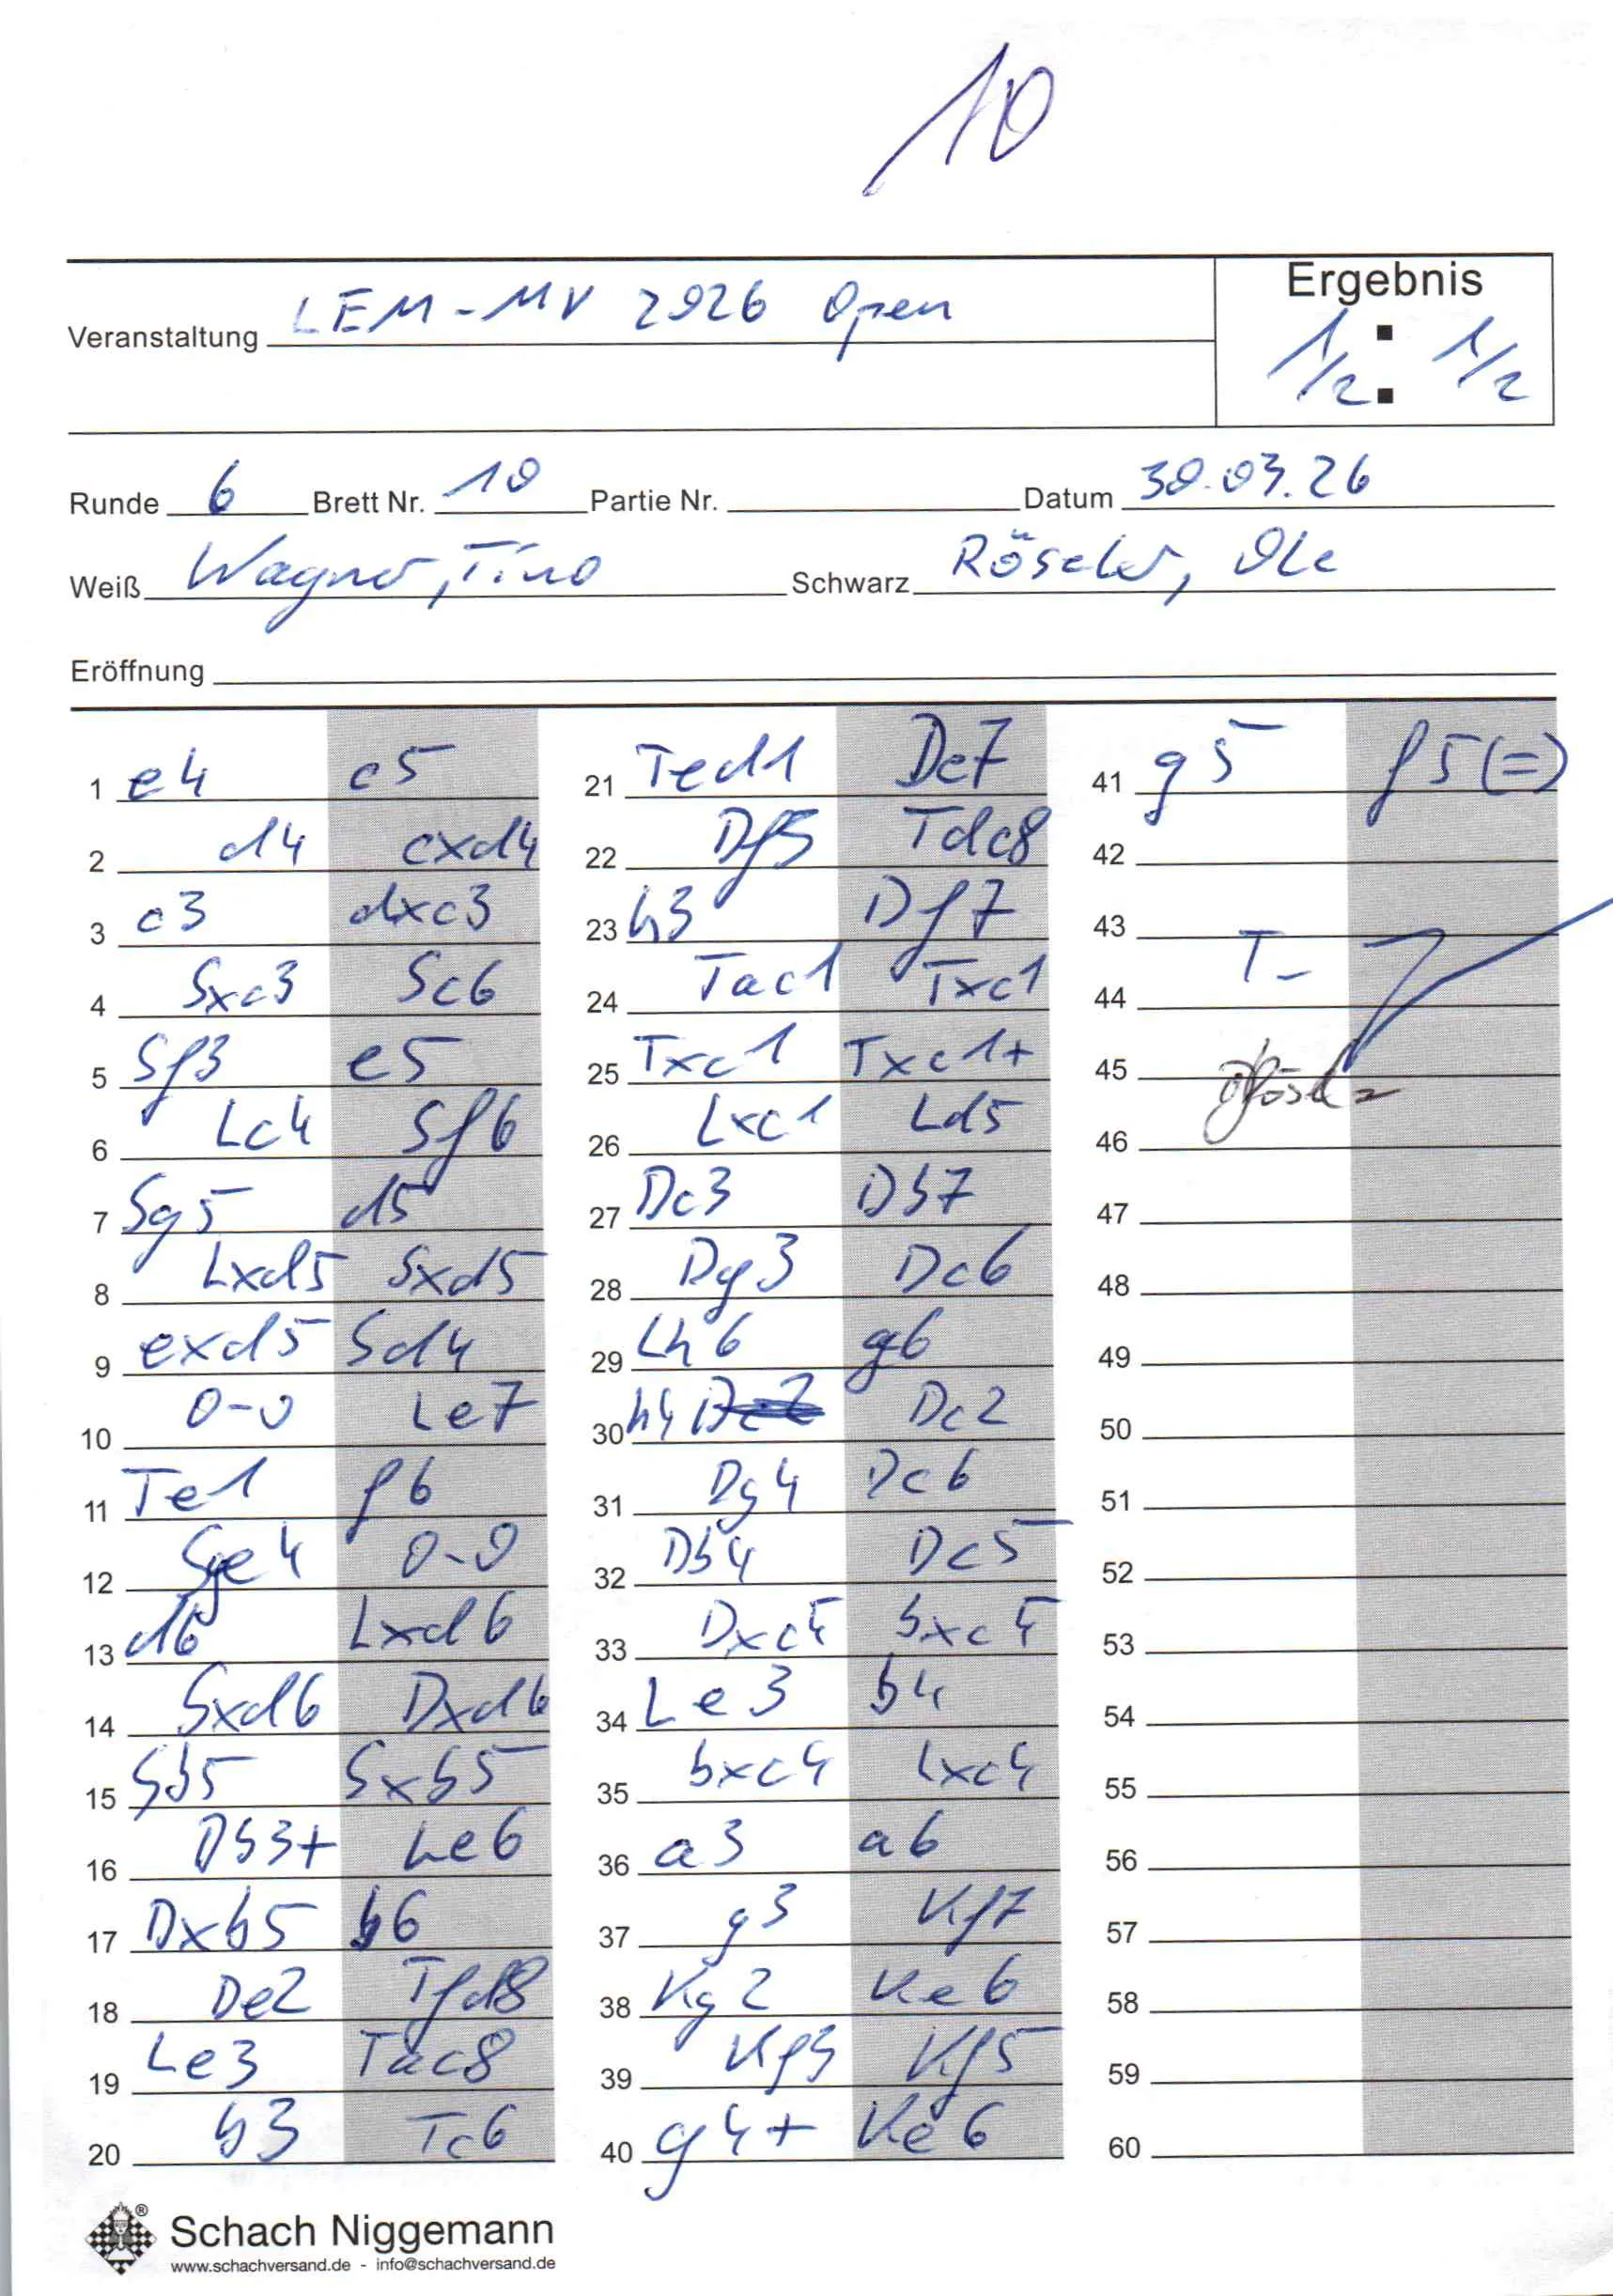 10
Ergebnis
Veranstaltung LEM-MV 2026 Open
1/2 : 1/2
Runde 6 Brett Nr. 10 Partie Nr. Datum 30.03.26
Weiß Wagner, Tino Schwarz Röseler, Ole
Eröffnung
1 e4 c5
2 d4 cxd4
3 c3 dxc3
4 Sxc3 Sc6
5 Sf3 e5
6 Lc4 Sf6
7 Sg5 d5
8 Lxd5 Sxd5
9 exd5 Sd4
10 0-0 Le7
11 Te1 f6
12 Sge4 0-0
13 d6 Lxd6
14 Sxd6 Dxd6
15 Sb5 Sxb5
16 Db3+ Le6
17 Dxb5 b6
18 De2 Tfd8
19 Le3 Tac8
20 b3 Tc6
21 Ted1 De7
22 Df3 Tdc8
23 h3 Df7
24 Tac1 Txc1
25 Txc1 Txc1+
26 Lxc1 Ld5
27 De3 Db7
28 Dg3 Dc6
29 Lh6 g6
30 h4 Dc2
31 Dg4 Dc6
32 Db4 Dc5
33 Dxc5 bxc5
34 Le3 c4
35 bxc4 Lxc4
36 a3 a6
37 g3 Kf7
38 Kg2 Ke6
39 Kf3 Kf5
40 g4+ Ke6
41 g5 f5(=)
42
43
44
45
46
47
48
49
50
51
52
53
54
55
56
57
58
59
60
Schach Niggemann
www.schachversand.de - info@schachversand.de